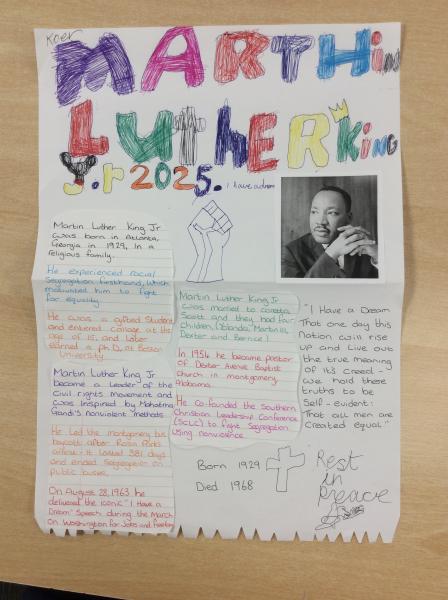 Koer
MARTHiN
LUTHER KiNG
J.r 2025. i have a dream
Martin Luther King Jr
was born in Atlanta,
Georgia in 1929, In a
religious family.
He experienced racial
Segregation firsthand, which
motivated him to fight
for equality
He was a gifted student
and entered collage at the
age of 15, and later
earned a ph.D. at Boston
University.
Martin Luther King Jr.
become a Leader of the
Civil rights movement and
was Inspired by Mahatma
Gandi's nonviolent methods.
He Led the montgomery bus
boycott after Rosa Parks
arrest. It Lasted 381 days
and ended Segregation on
public buses.
On August 28, 1963 he
delivered the iconic "I Have a
Dream" Speech during the March
On Washington for Jobs and freedom
Martin Luther King Jr
was married to coretta
Scott and they had four
children, (Yolanda, Martin III,
Dexter and Bernice)
In 1954 he became pastor
of Dexter Avenue Baptist
Church in montgomery
Alabama.
He co-founded the southern
Christian Leadership Conference
(SCLC) to fight Segregation
using nonviolence.
"I Have a Dream
That one day this
Nation will rise
up and Live out
the true meaning
of its creed -
we hold these
truths to be
Self-evident:
That all men are
created equal."
Born 1929
Died 1968
Rest
in
peace